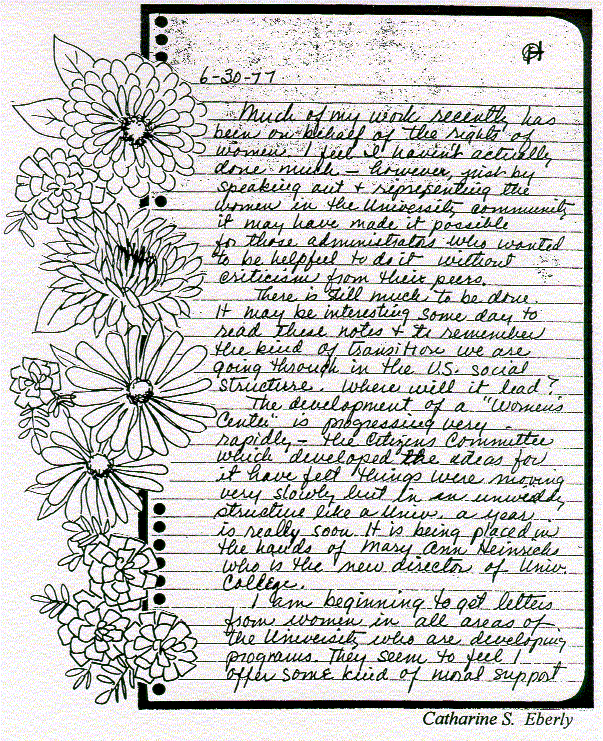 6-30-77
Much of my work recently has
been on behalf of the rights of
women. I feel I haven't actually
done much - however, just by
speaking out + representing the
women in the University community
it may have made it possible
for those administrators who wanted
to be helpful to do it without
criticism from their peers.
There is still much to be done.
It may be interesting some day to
read these notes + to remember
the kind of transition we are
going through in the U.S. social
structure. Where will it lead?
The development of a "Women's
Center" is progressing very
rapidly - the Citizens Committee
which developed the ideas for
it have felt things were moving
very slowly but in an unwieldy
structure like a Univ. a year
is really soon. It is being placed in
the hands of Mary Ann Heinrichs
who is the new director of Univ.
College.
I am beginning to get letters
from women in all areas of
the University who are developing
programs. They seem to feel I
offer some kind of moral support
Catharine S. Eberly